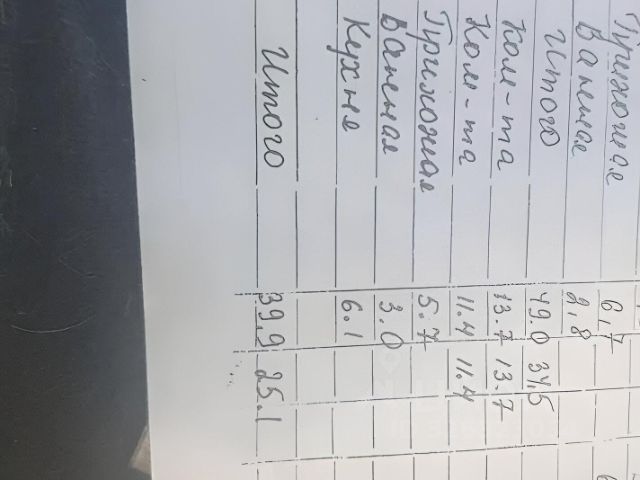 Прихожая 6,7
Ванная 2,8
Итого 49.0 34,5
Ком-та 13.7 13.7
Ком-та 11.4 11.4
Прихожая 5.7
Ванная 3.0
Кухня 6.1
Итого 39,9 25.1